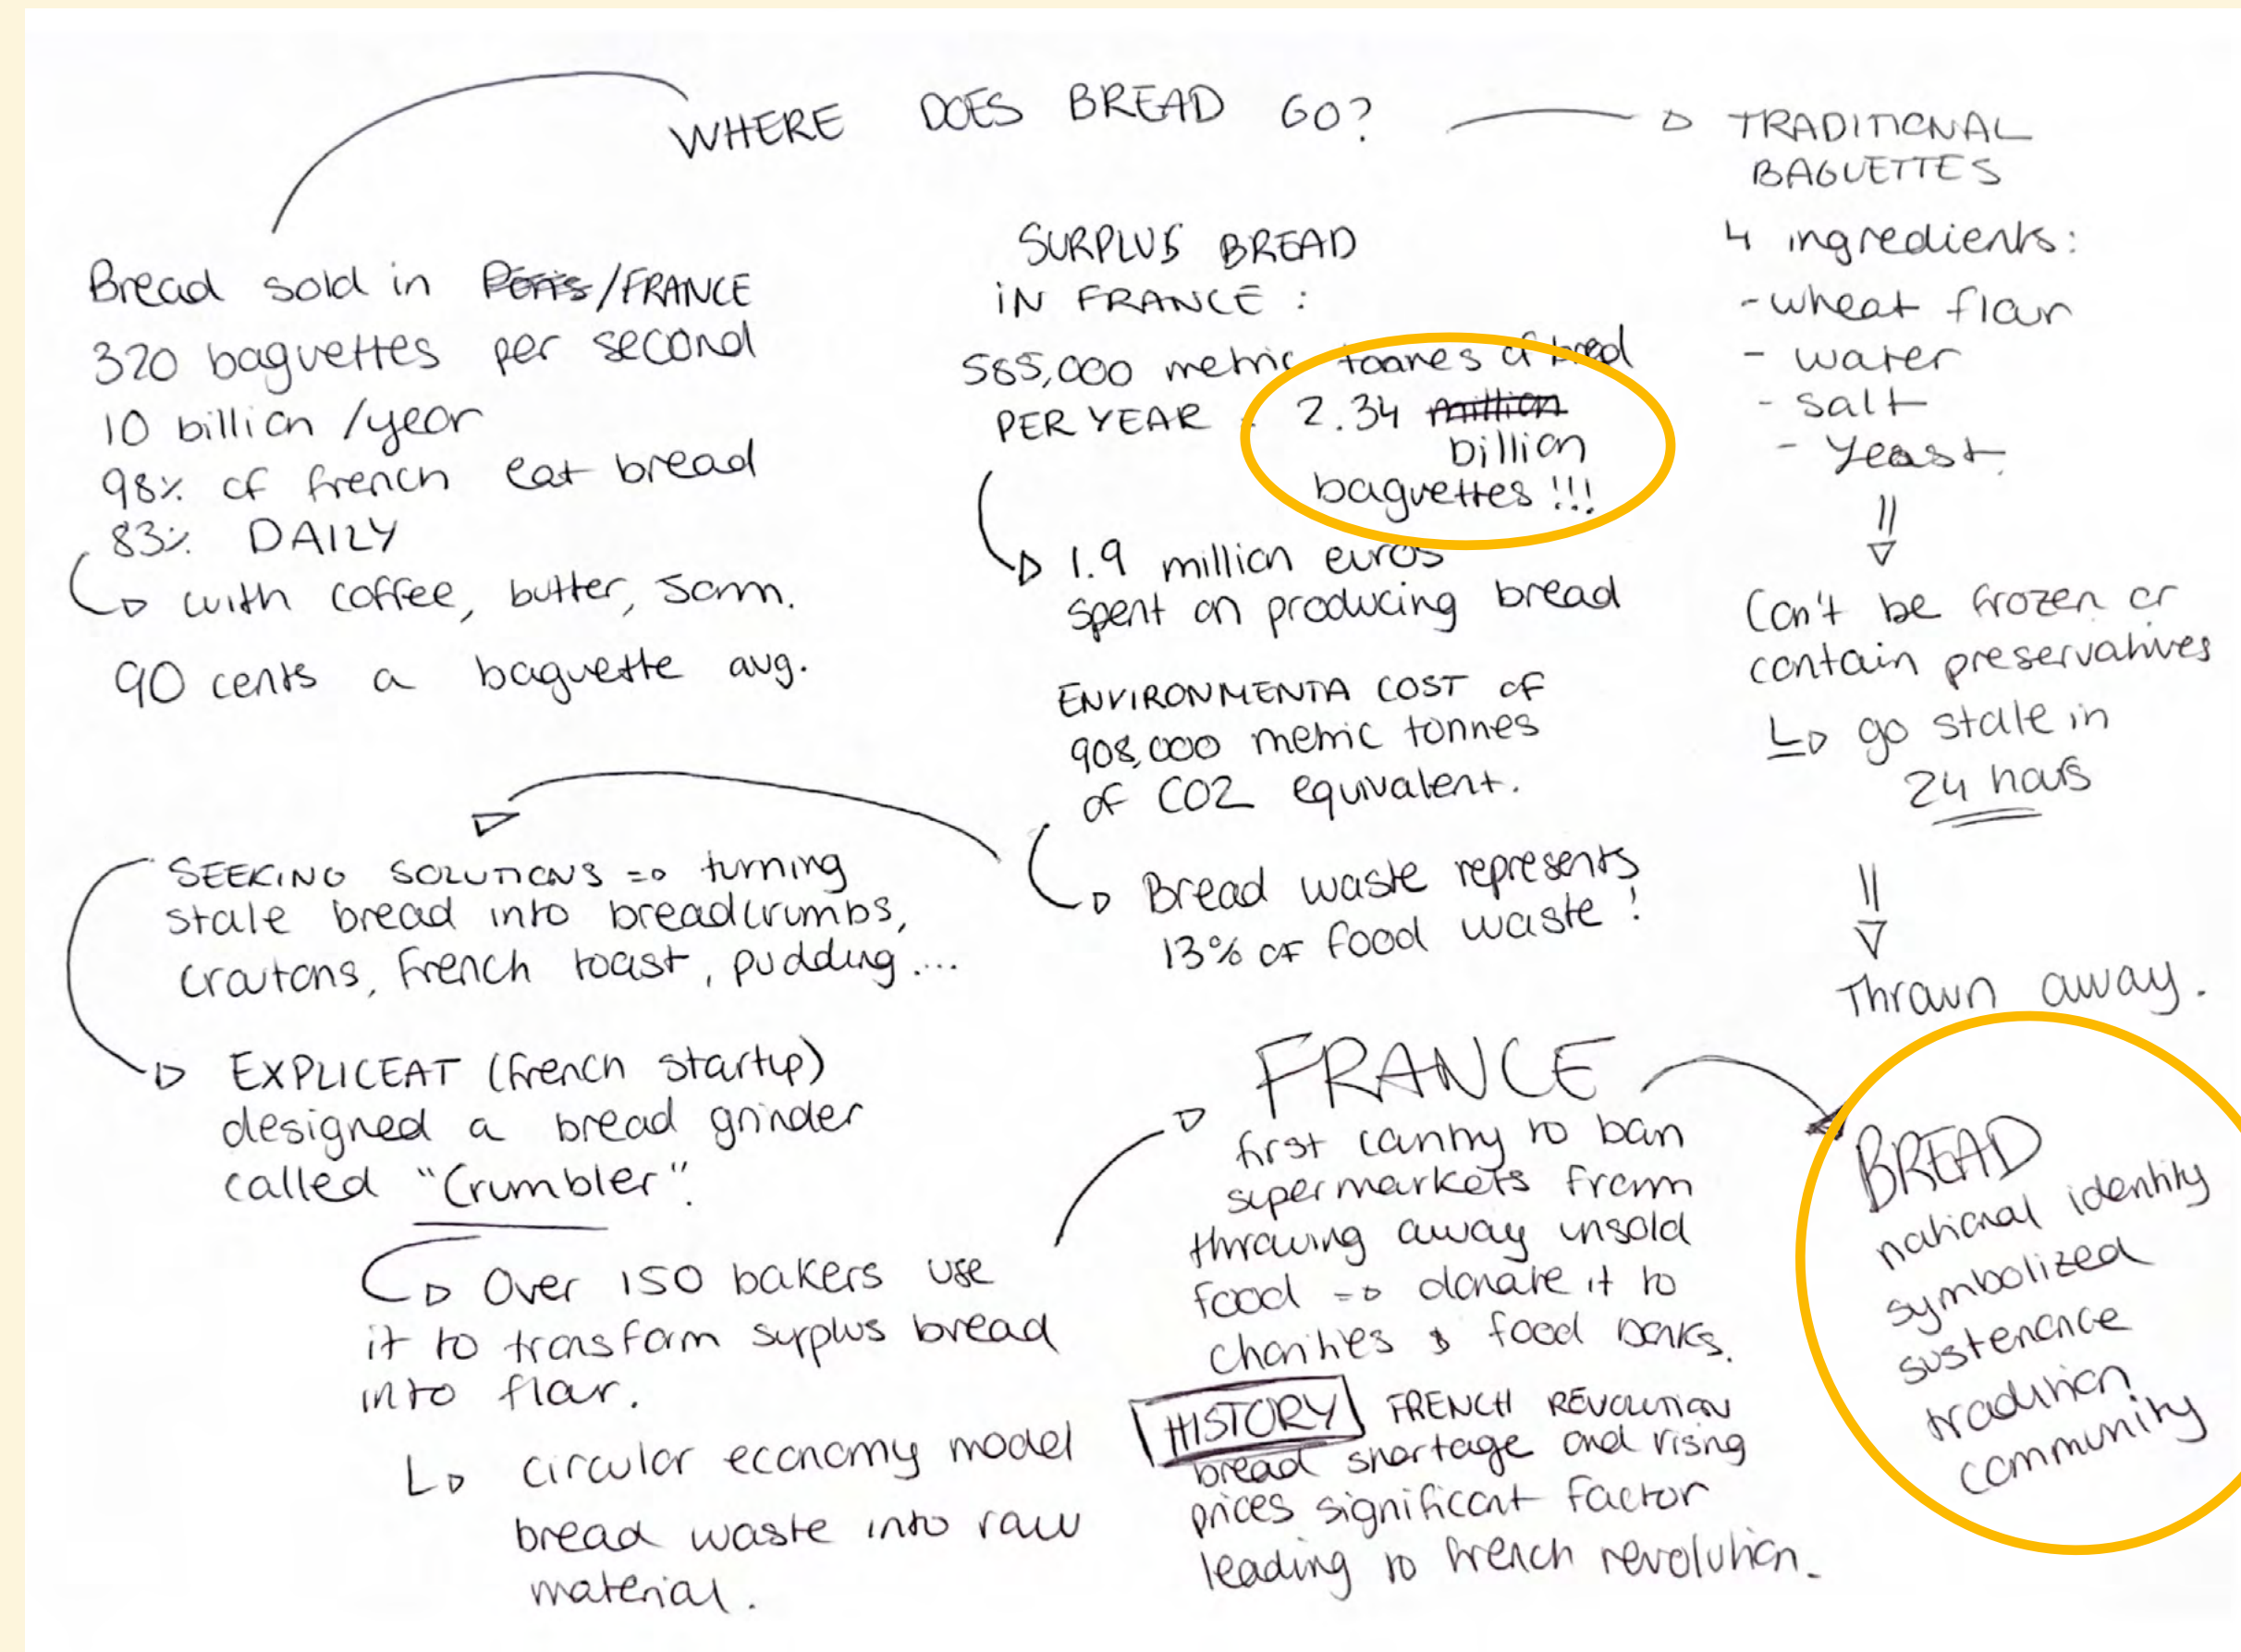 WHERE DOES BREAD GO?
Bread sold in Paris/FRANCE
320 baguettes per second
10 billion /year
98% of french eat bread
83% DAILY
with coffee, butter, jam.
90 cents a baguette avg.
SURPLUS BREAD
IN FRANCE :
585,000 metric tonnes of bread
PER YEAR = 2.34 million
billion
baguettes !!!
1.9 million euros
spent on producing bread
ENVIRONMENTA COST OF
908,000 metric tonnes
of CO2 equivalent.
Bread waste represents
13% OF food waste !
TRADITIONAL
BAGUETTES
4 ingredients:
- wheat flour
- water
- salt
- yeast.
Can't be frozen or
contain preservatives
go stale in
24 hours
Thrown away.
SEEKING SOLUTIONS => turning
stale bread into breadcrumbs,
croutons, French toast, pudding ....
EXPLICEAT (french startup)
designed a bread grinder
called "Crumbler".
Over 150 bakers use
it to transform surplus bread
into flour.
circular economy model
bread waste into raw
material.
FRANCE
first country to ban
supermarkets from
throwing away unsold
food => donate it to
charities & food banks.
HISTORY FRENCH REVOLUTION
bread shortage and rising
prices significant factor
leading to french revolution.
BREAD
national identity
symbolized
sustenance
tradition
community